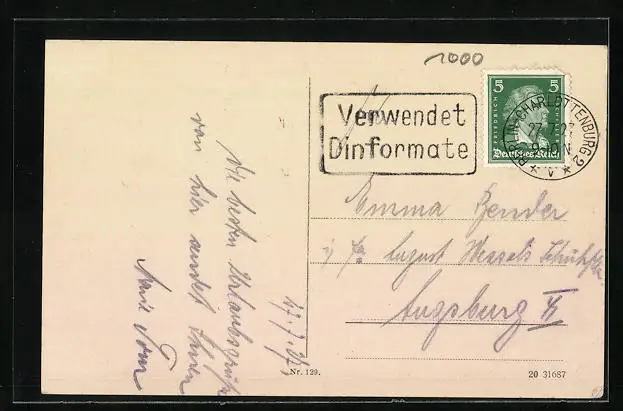 1000
Verwendet
Dinformate
5 5
FRIEDRICH SCHILLER
Deutsches Reich
BERLIN-CHARLOTTENBURG 2
27.7.27
9-10 N
* v *
Emma Bender
August Wessels Schuhfbr.
Augsburg
Die besten Urlaubsgrüße
von hier sendet Ihnen
27.7.27
Nr. 129.
20 31687